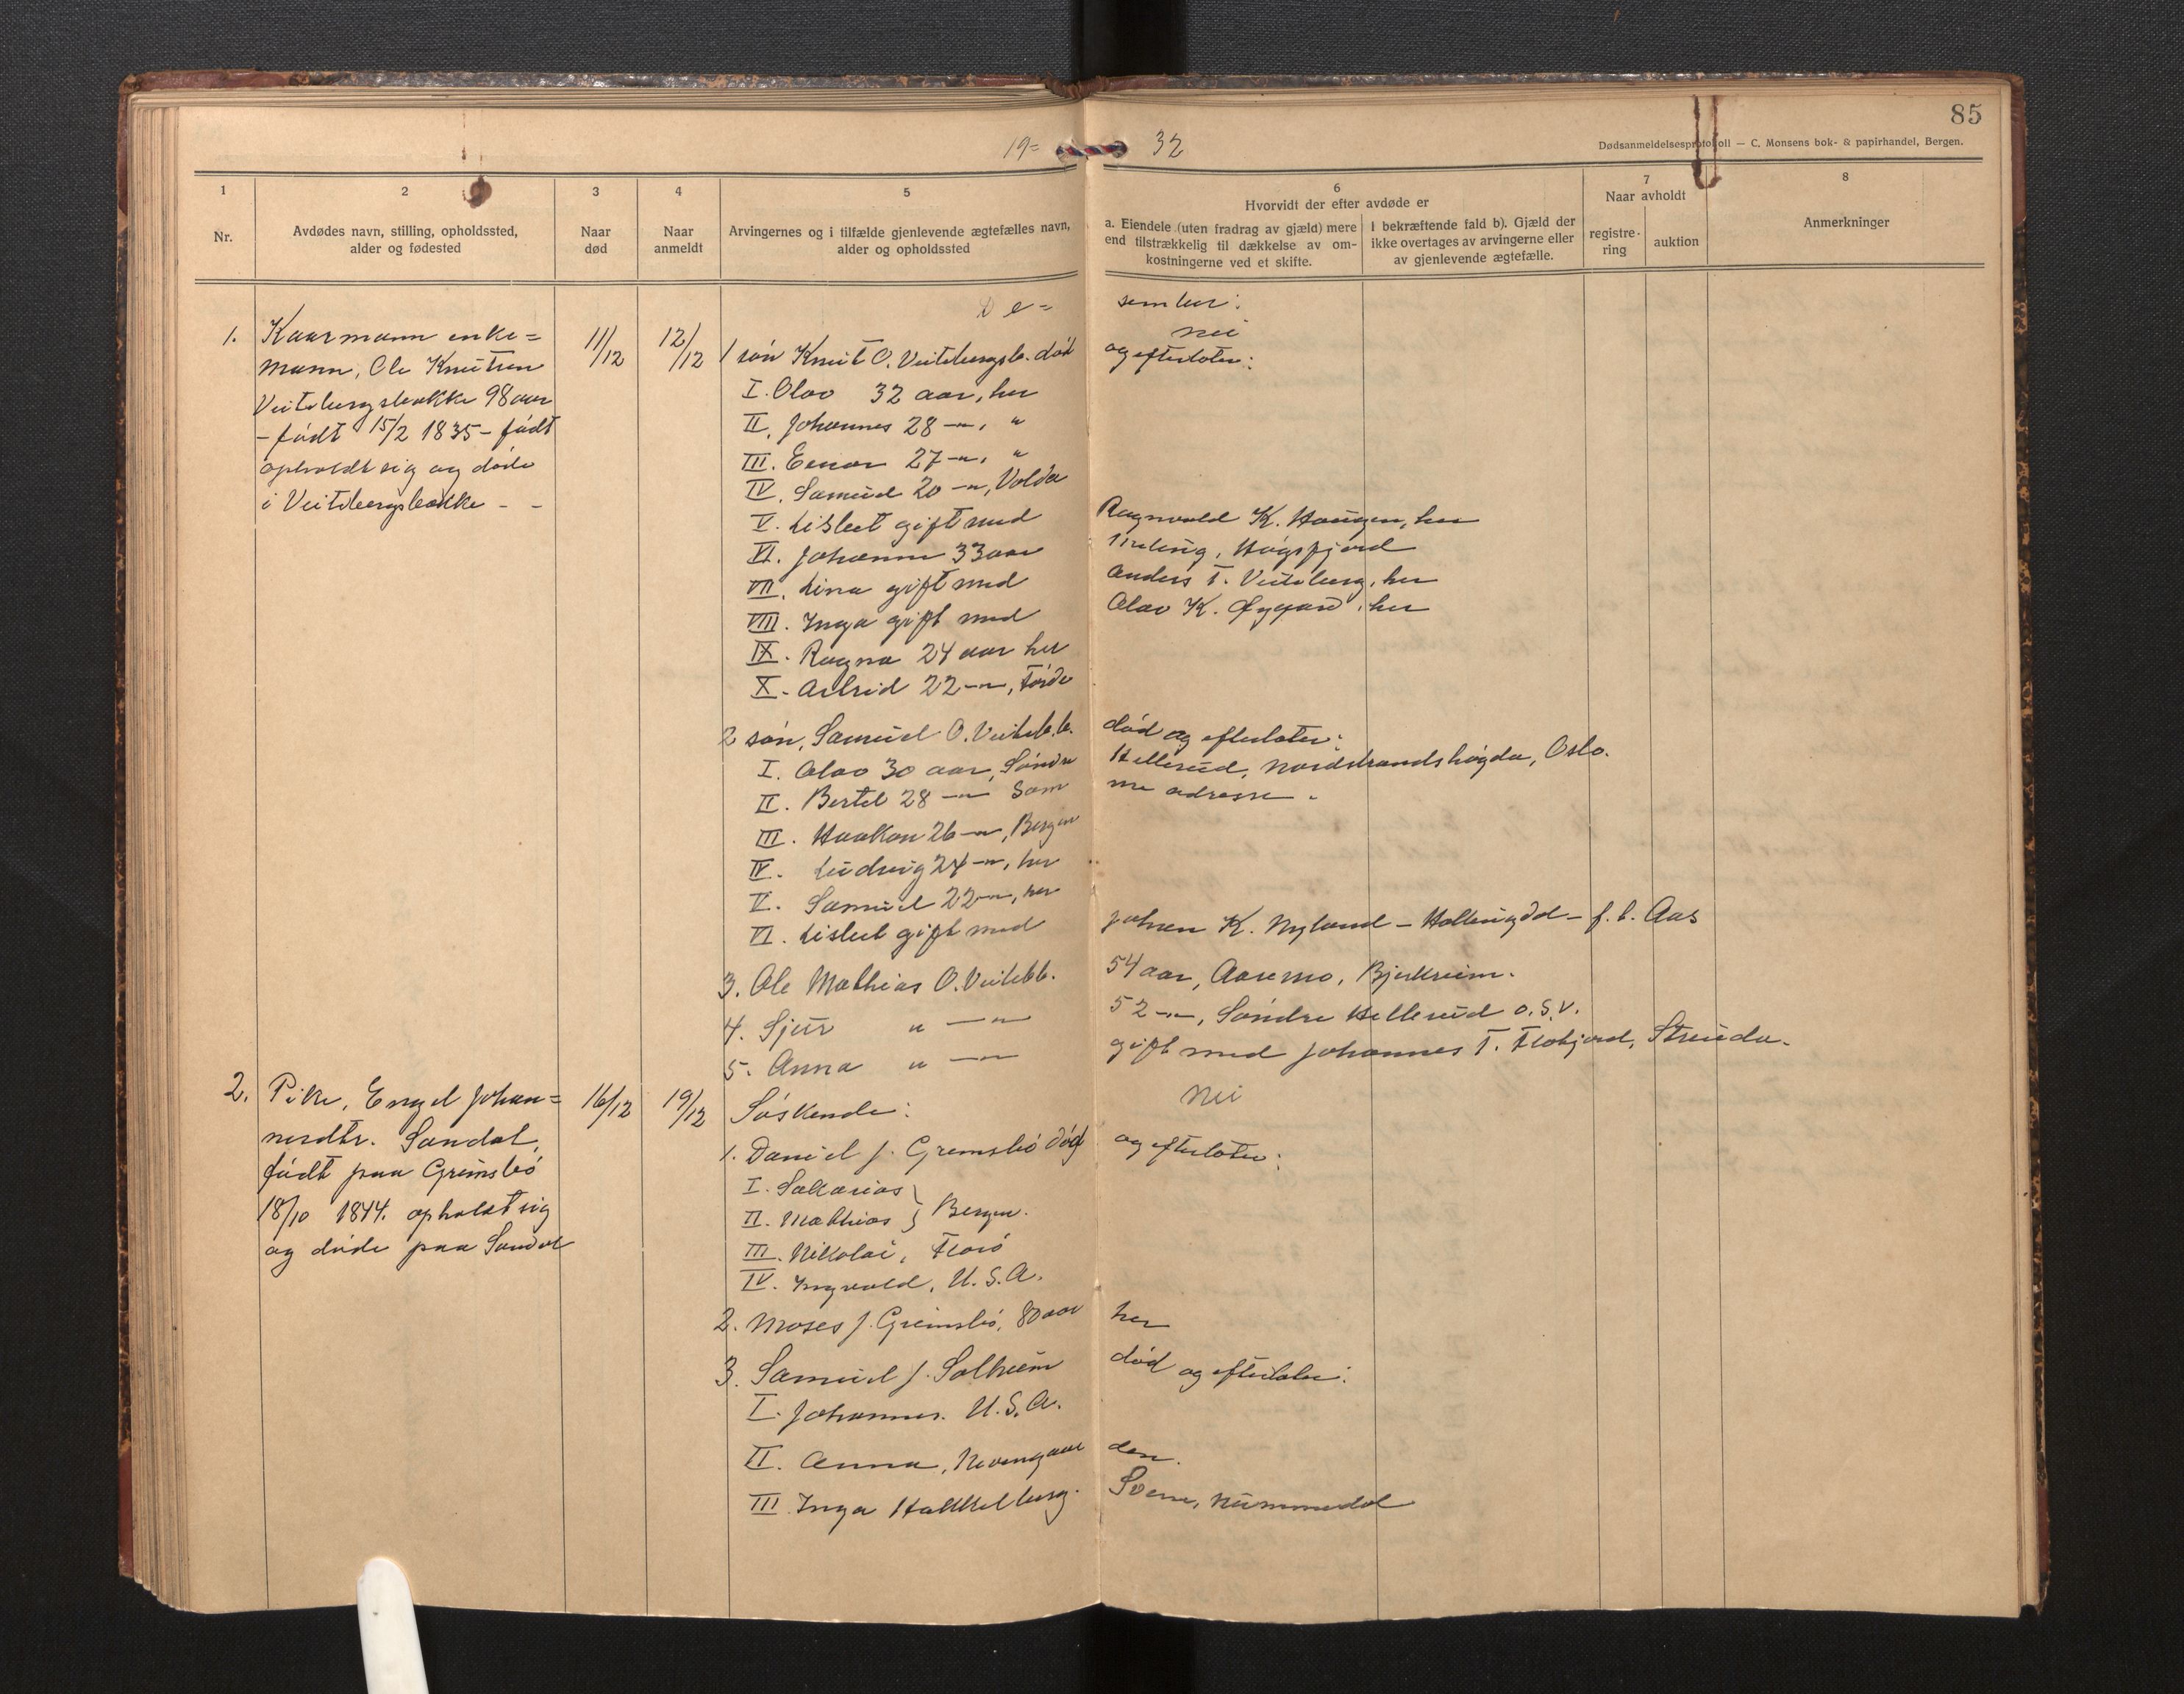 85
19= 32
Dødsanmeldelsesprotokoll — C. Monsens bok- & papirhandel, Bergen.
1 2 3 4 5 6 7 8
Nr.
Avdødes navn, stilling, opholdssted,
alder og fødested
Naar
død
Naar
anmeldt
Arvingernes og i tilfælde gjenlevende ægtefælles navn,
alder og opholdssted
Hvorvidt der efter avdøde er
a. Eiendele (uten fradrag av gjæld) mere
end tilstrækkelig til dækkelse av om-
kostningerne ved et skifte.
I bekræftende fald b). Gjæld der
ikke overtages av arvingerne eller
av gjenlevende ægtefælle.
Naar avholdt
registre-
ring
auktion
Anmerkninger
De= sember:
1. Kaarmann enke=
mann, Ole Knutsen
Veitebergsbakke 98 aar
- født 15/2 1835 - født
opholdt sig og døde
i Veitebergsbakke - -
11/12
12/12
nei
1 søn Knut O. Veitebergsb. død og efterlater:
I. Olav 32 aar, her
II. Johannes 28 —"—, "
III. Einar 27 —"—, "
IV. Samuel 20 —"—, Volda
V. Lisbet gift med Ragnvald K. Haugen, her
VI. Johanne 33 aar Høgsfjord
VII. Lina gift med Anders T. Veiteberg, her
VIII. Inga gift med Olav K. Øygard, her
IX. Ragna 24 aar her
X. Astrid 22 —"—, Førde
2 søn, Samuel O. Veiteb.b. død og efterlater:
I. Olav 30 aar, Søndre Hellerud, Nordstrandshøgda, Oslo.
II. Bertel 28 —"— Sam me adresse.
III. Haakon 26 —"—, Bergen
IV. Ludvig 24 —"—, her
V. Samuel 22 —"—, her
VI. Lisbet gift med Johan K. Nyland - - f. t. Aas
3. Ole Mathias O. Veitebb. 54 aar, Aasemo, Bjerkreim.
4. Sjur " —"— 52 —"—, Søndre Hellerud o.s.v.
5. Anna " —"— gift med Johannes T. Flokjord,
2. Pike, Engel Johan=
nesdtr. Sandal,
født paa Grimsbø
18/10 1844. opholdt sig
og døde paa Sandal
16/12
19/12
Søskende: Nei
1. Daniel J. Grimsbø død og efterlater:
I. Sakarias
II. Mathias } Bergen.
III. Nikolai, Florø
IV. Ingvald, U.S.A.
2. Moses J. Grimsbø, 80 aar her
3. Samuel J. Solheim død og efterlater:
I. Johannes. U.S.A.
II. Anna, Nevengaar den.
III. Inga Svene, Nummedal